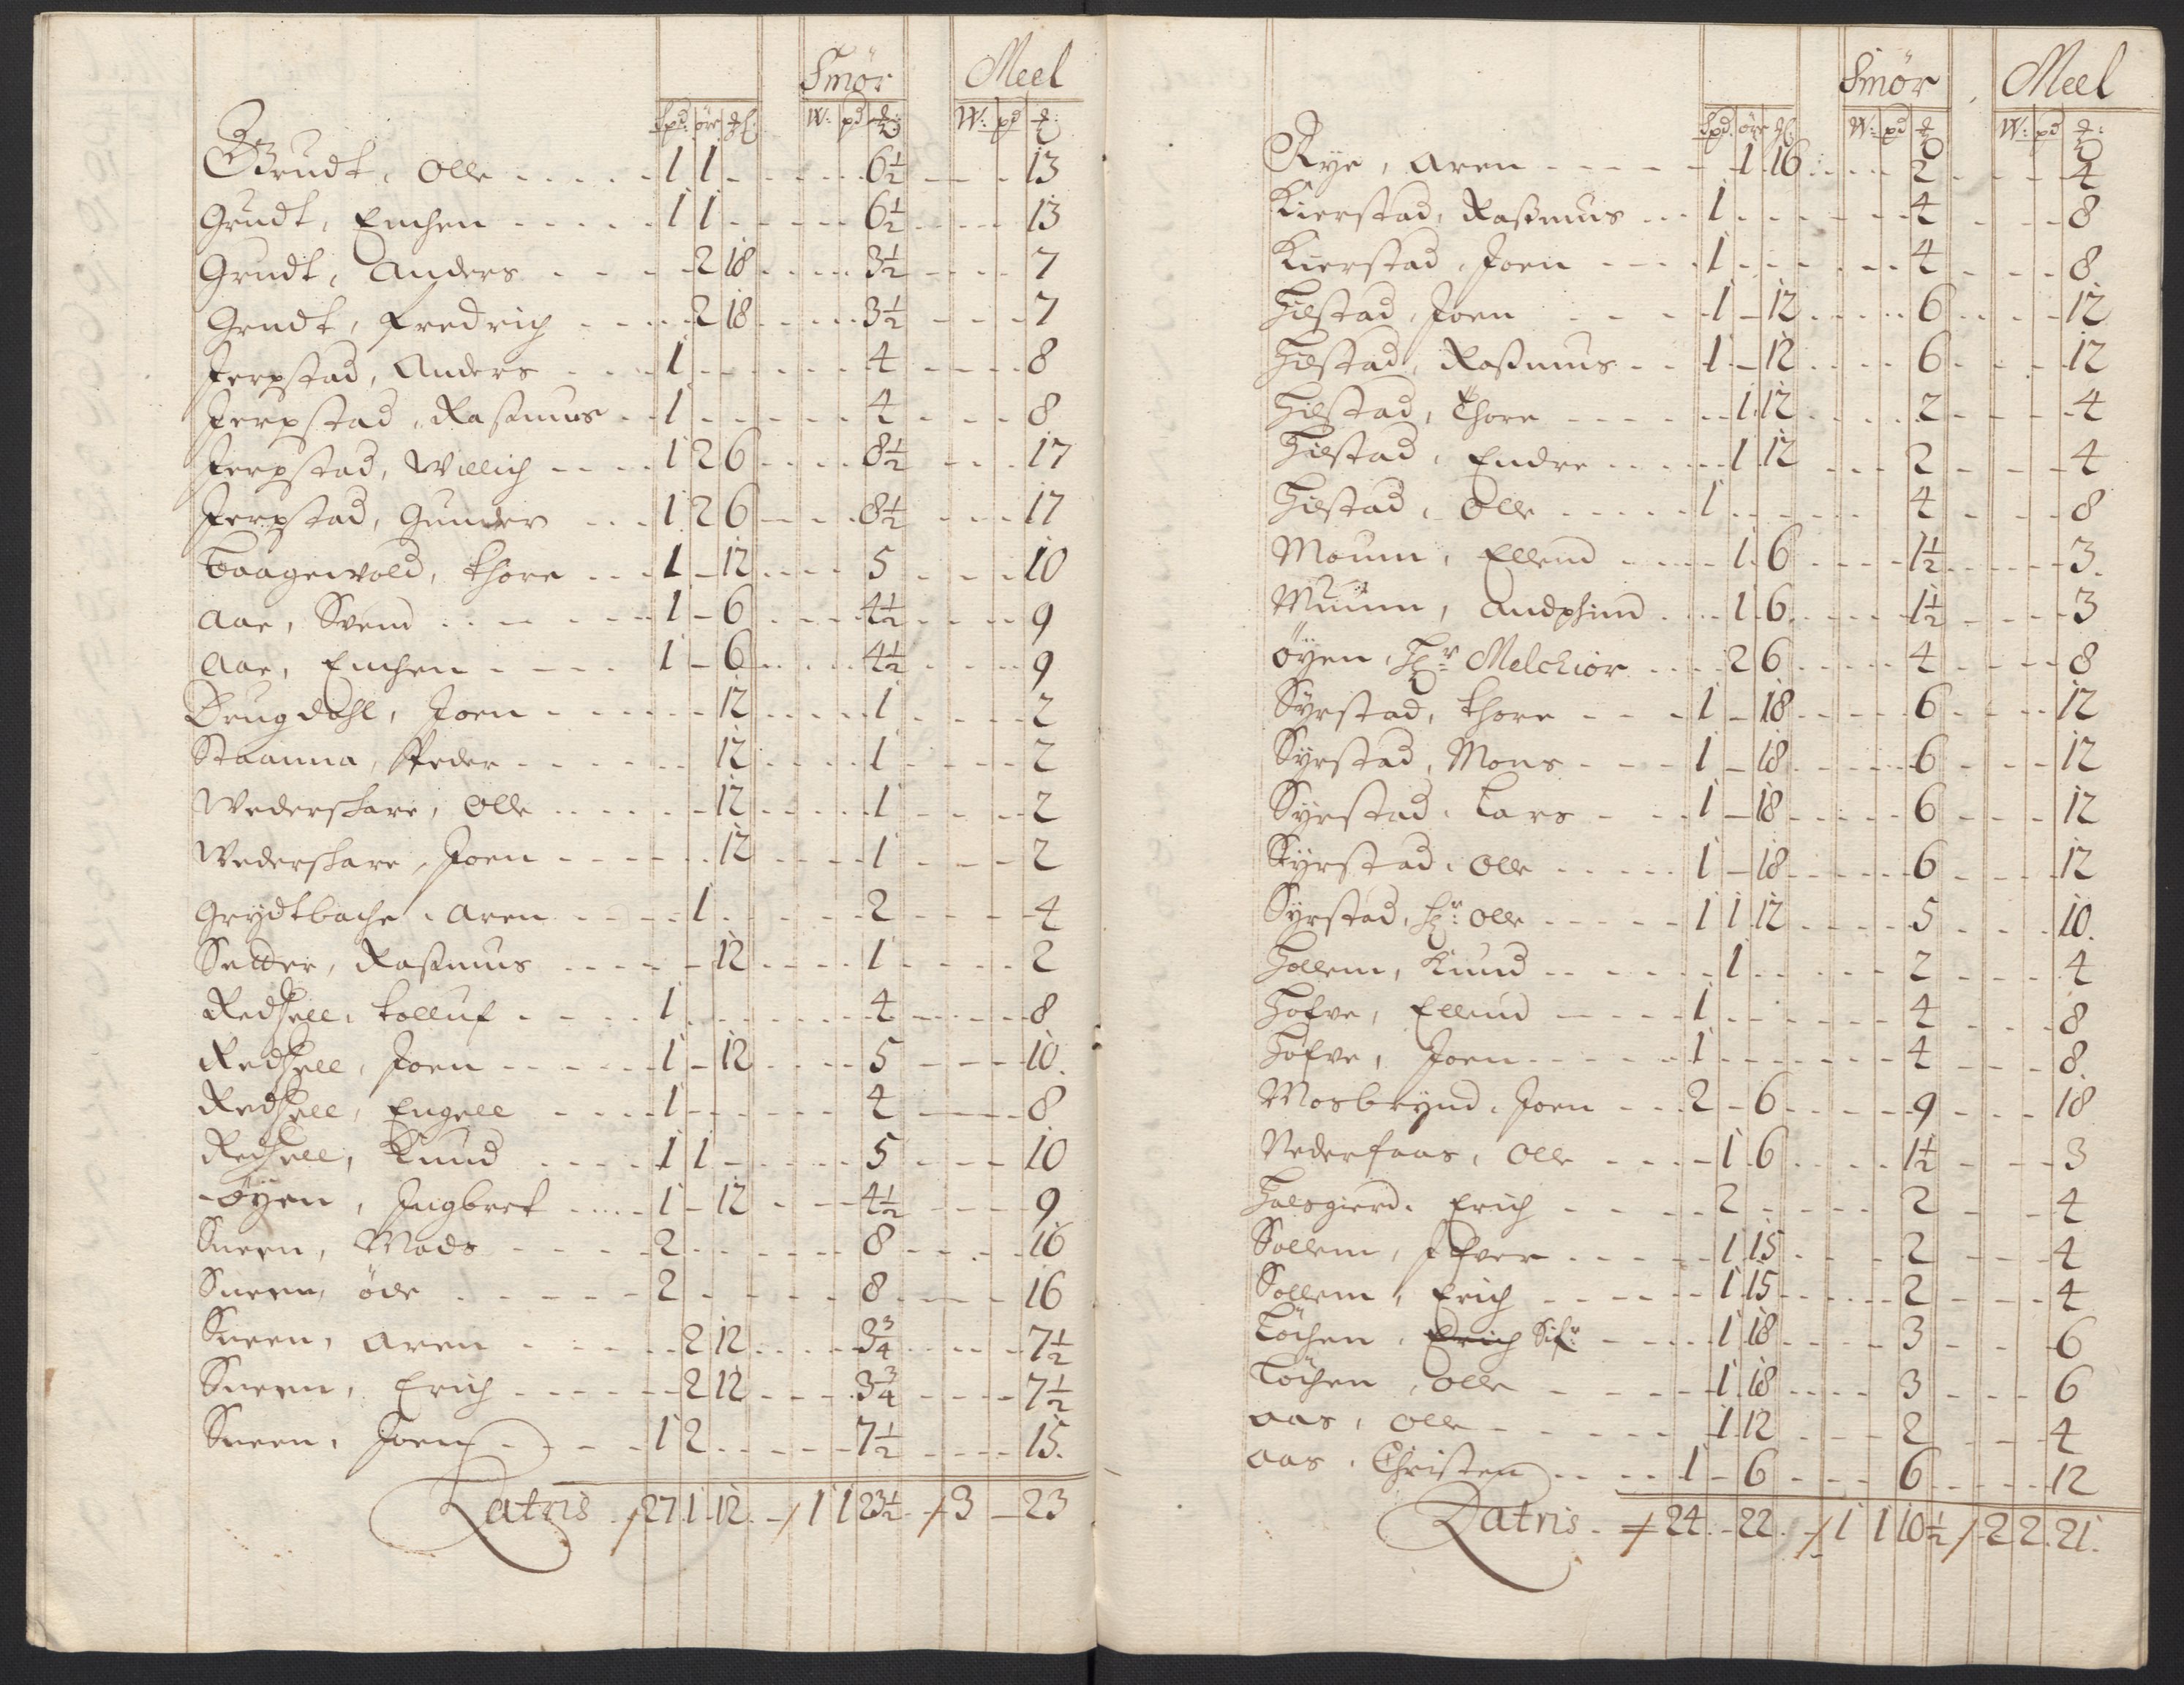 Smør Meel
Spd: øre W: pd W: pd
Grudt, Olle 1 1 6½ 13
Grudt, Enchen 1 1 6½ 13
Grudt, Anders 2 18 3½ 7
Grudt, Fredrich 2 18 3½ 7
Jerpstad, Anders 1 4 8
Jerpstad, Rasmus 1 4 8
Jerpstad, Willich 1 2 6 8½ 17
Jerpstad, Gunder 1 2 6 8½ 17
Kaagevold, Thore 1 - 12 5 10
Aae, Svend 1 - 6 4½ 9
Aae, Enchen 1 - 6 4½ 9
Drugdahl, Joen 12 1 2
Staanna, Peder 12 1 2
Wederskare, Olle 12 1 2
Wederskare, Joen 12 1 2
Grydtbache, Aren 1 2 4
Setter, Rasmus 12 1 2
Redhell, Tolluf 1 4 8
Redhell, Joen 1 - 12 5 10.
Redhell, Engell 1 4 8
Redhell, Knud 1 1 5 10
øyen, Ingbret 1 - 12 4½ 9
Sneen, Mads 2 8 16
Sneen, øde 2 8 16
Sneen, Aren 2 12 3¾ 7½
Sneen, Erich 2 12 3¾ 7½
Sneen, Joen 1 2 7½ 15.
Latris 27 1 12 1 1 23½ 3 - 23
Smør Meel
Spd. øre W: pd W: pd
Rye, Aren 1 16 2 4
Kierstad, Rasmus 1 4 8
Kierstad, Joen 1 4 8
Hilstad, Joen 1 - 12 6 12
Hilstad, Rasmus 1 - 12 6 12
Hilstad, Thore 1 12 2 4
Hilstad, Endre 1 12 2 4
Hilstad, Olle 1 4 8
Moum, Ellend 1 6 1½ 3.
Muum, Andphind 1 6 1½ 3
øyen, Hr Melchior 2 6 4 8
Syrstad, Thore 1 - 18 6 12
Syrstad, Mons 1 - 18 6 12
Syrstad, Lars 1 - 18 6 12
Syrstad, Olle 1 - 18 6 12
Syrstad, Hr: Olle 1 1 12 5 10.
Hollem, Knud 1 2 4
Hofve, Ellend 1 4 8
Hofve, Joen 1 4 8.
Mosbrynd, Joen 2 - 6 9 18
Nederfaas, Olle 1 6 1½ 3
Halsgierd, Erich 2 2 4
Sollem, Ifver 1 15 2 4
Sollem, Erich 1 15 2 4
Løchen, Erich Sifr: 1 18 3 6
Løchen, Olle 1 18 3 6
Aas, Olle 1 12 2 4
Aas, Christen 1 - 6 6 12
Latris 24 - 22 1 1 10½ 2 2 21.